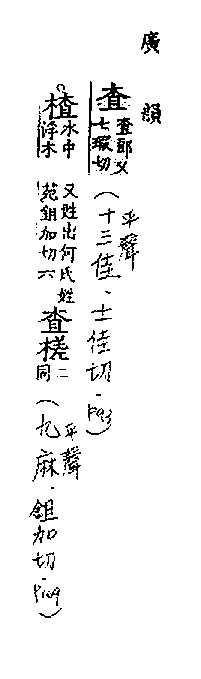 廣韻
查 查郎又士瑕切 (平聲十三佳、士佳切-P93)
楂 水中浮木 又姓出何氏姓苑鉏加切六 查槎 二同 (平聲九麻、鉏加切-P169)